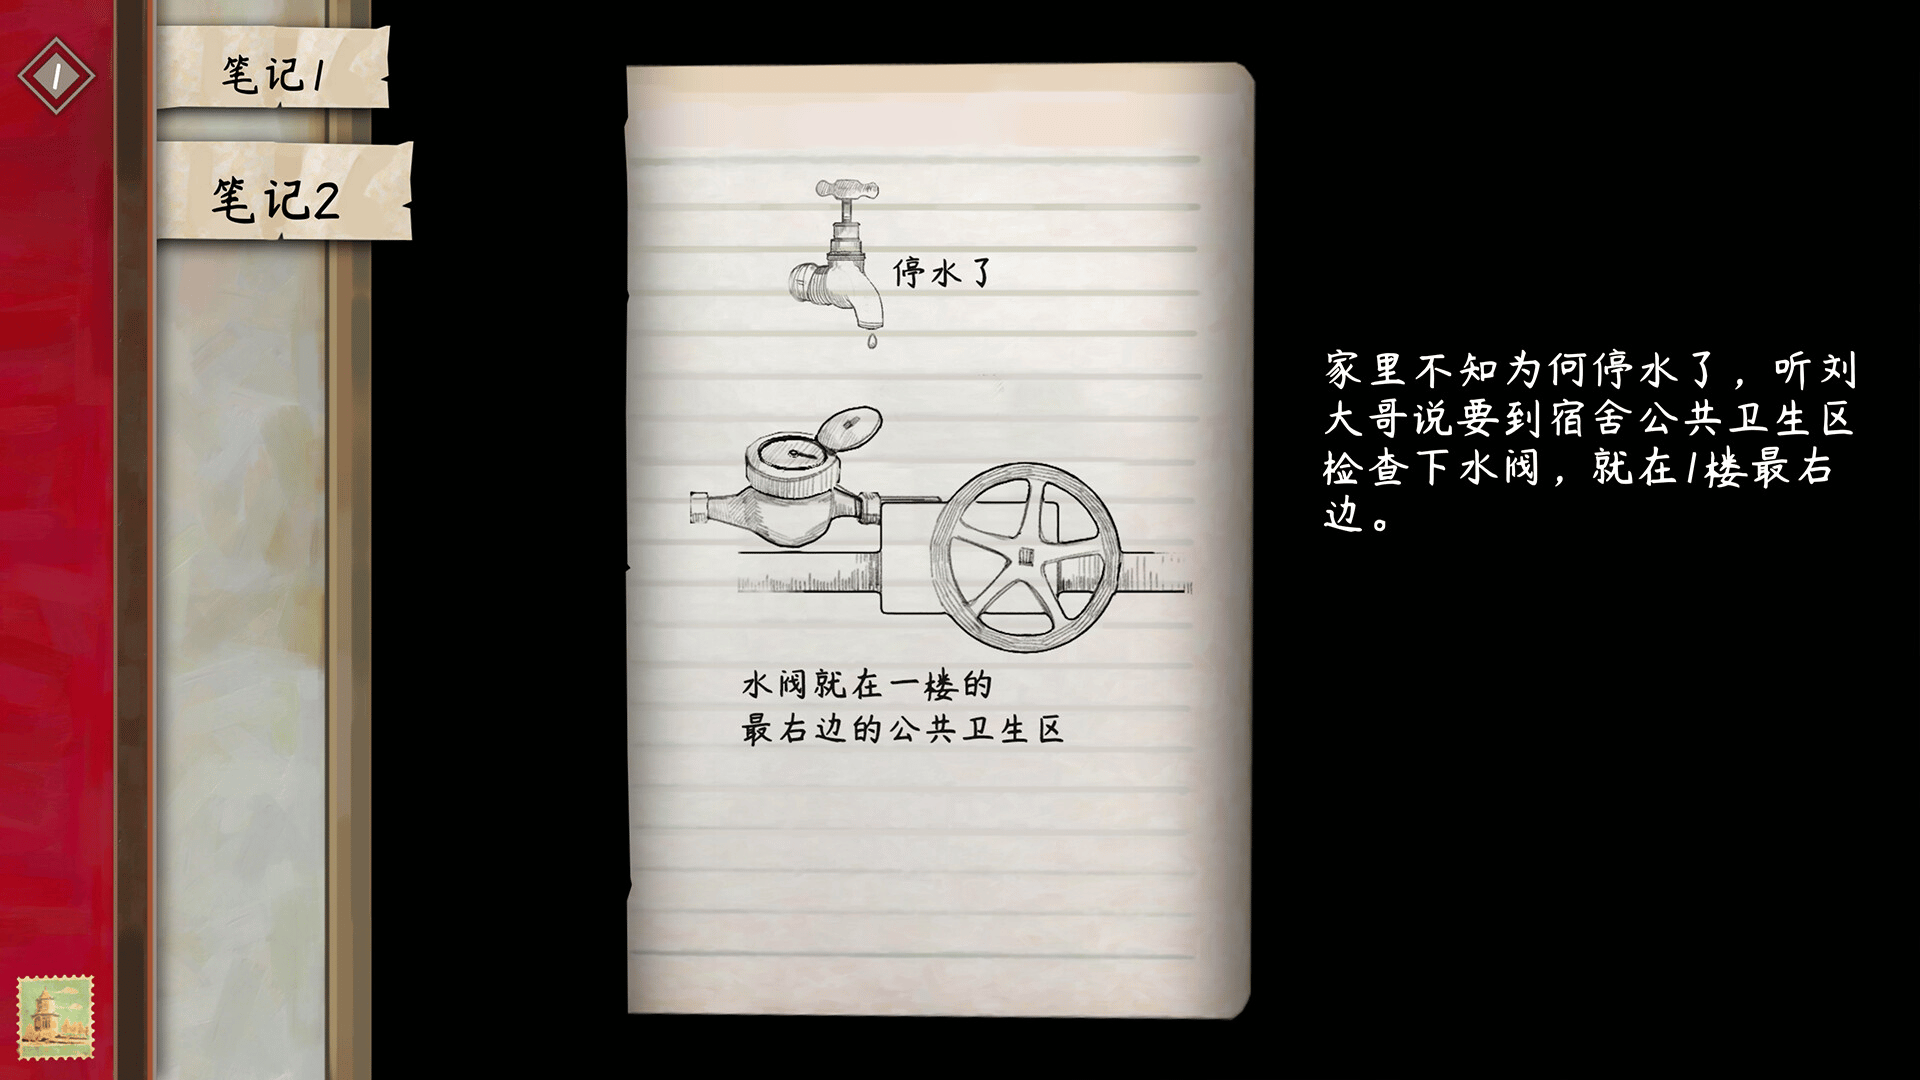 1
笔记1
笔记2
停水了
水阀就在一楼的
最右边的公共卫生区
家里不知为何停水了，听刘
大哥说要到宿舍公共卫生区
检查下水阀，就在1楼最右
边。